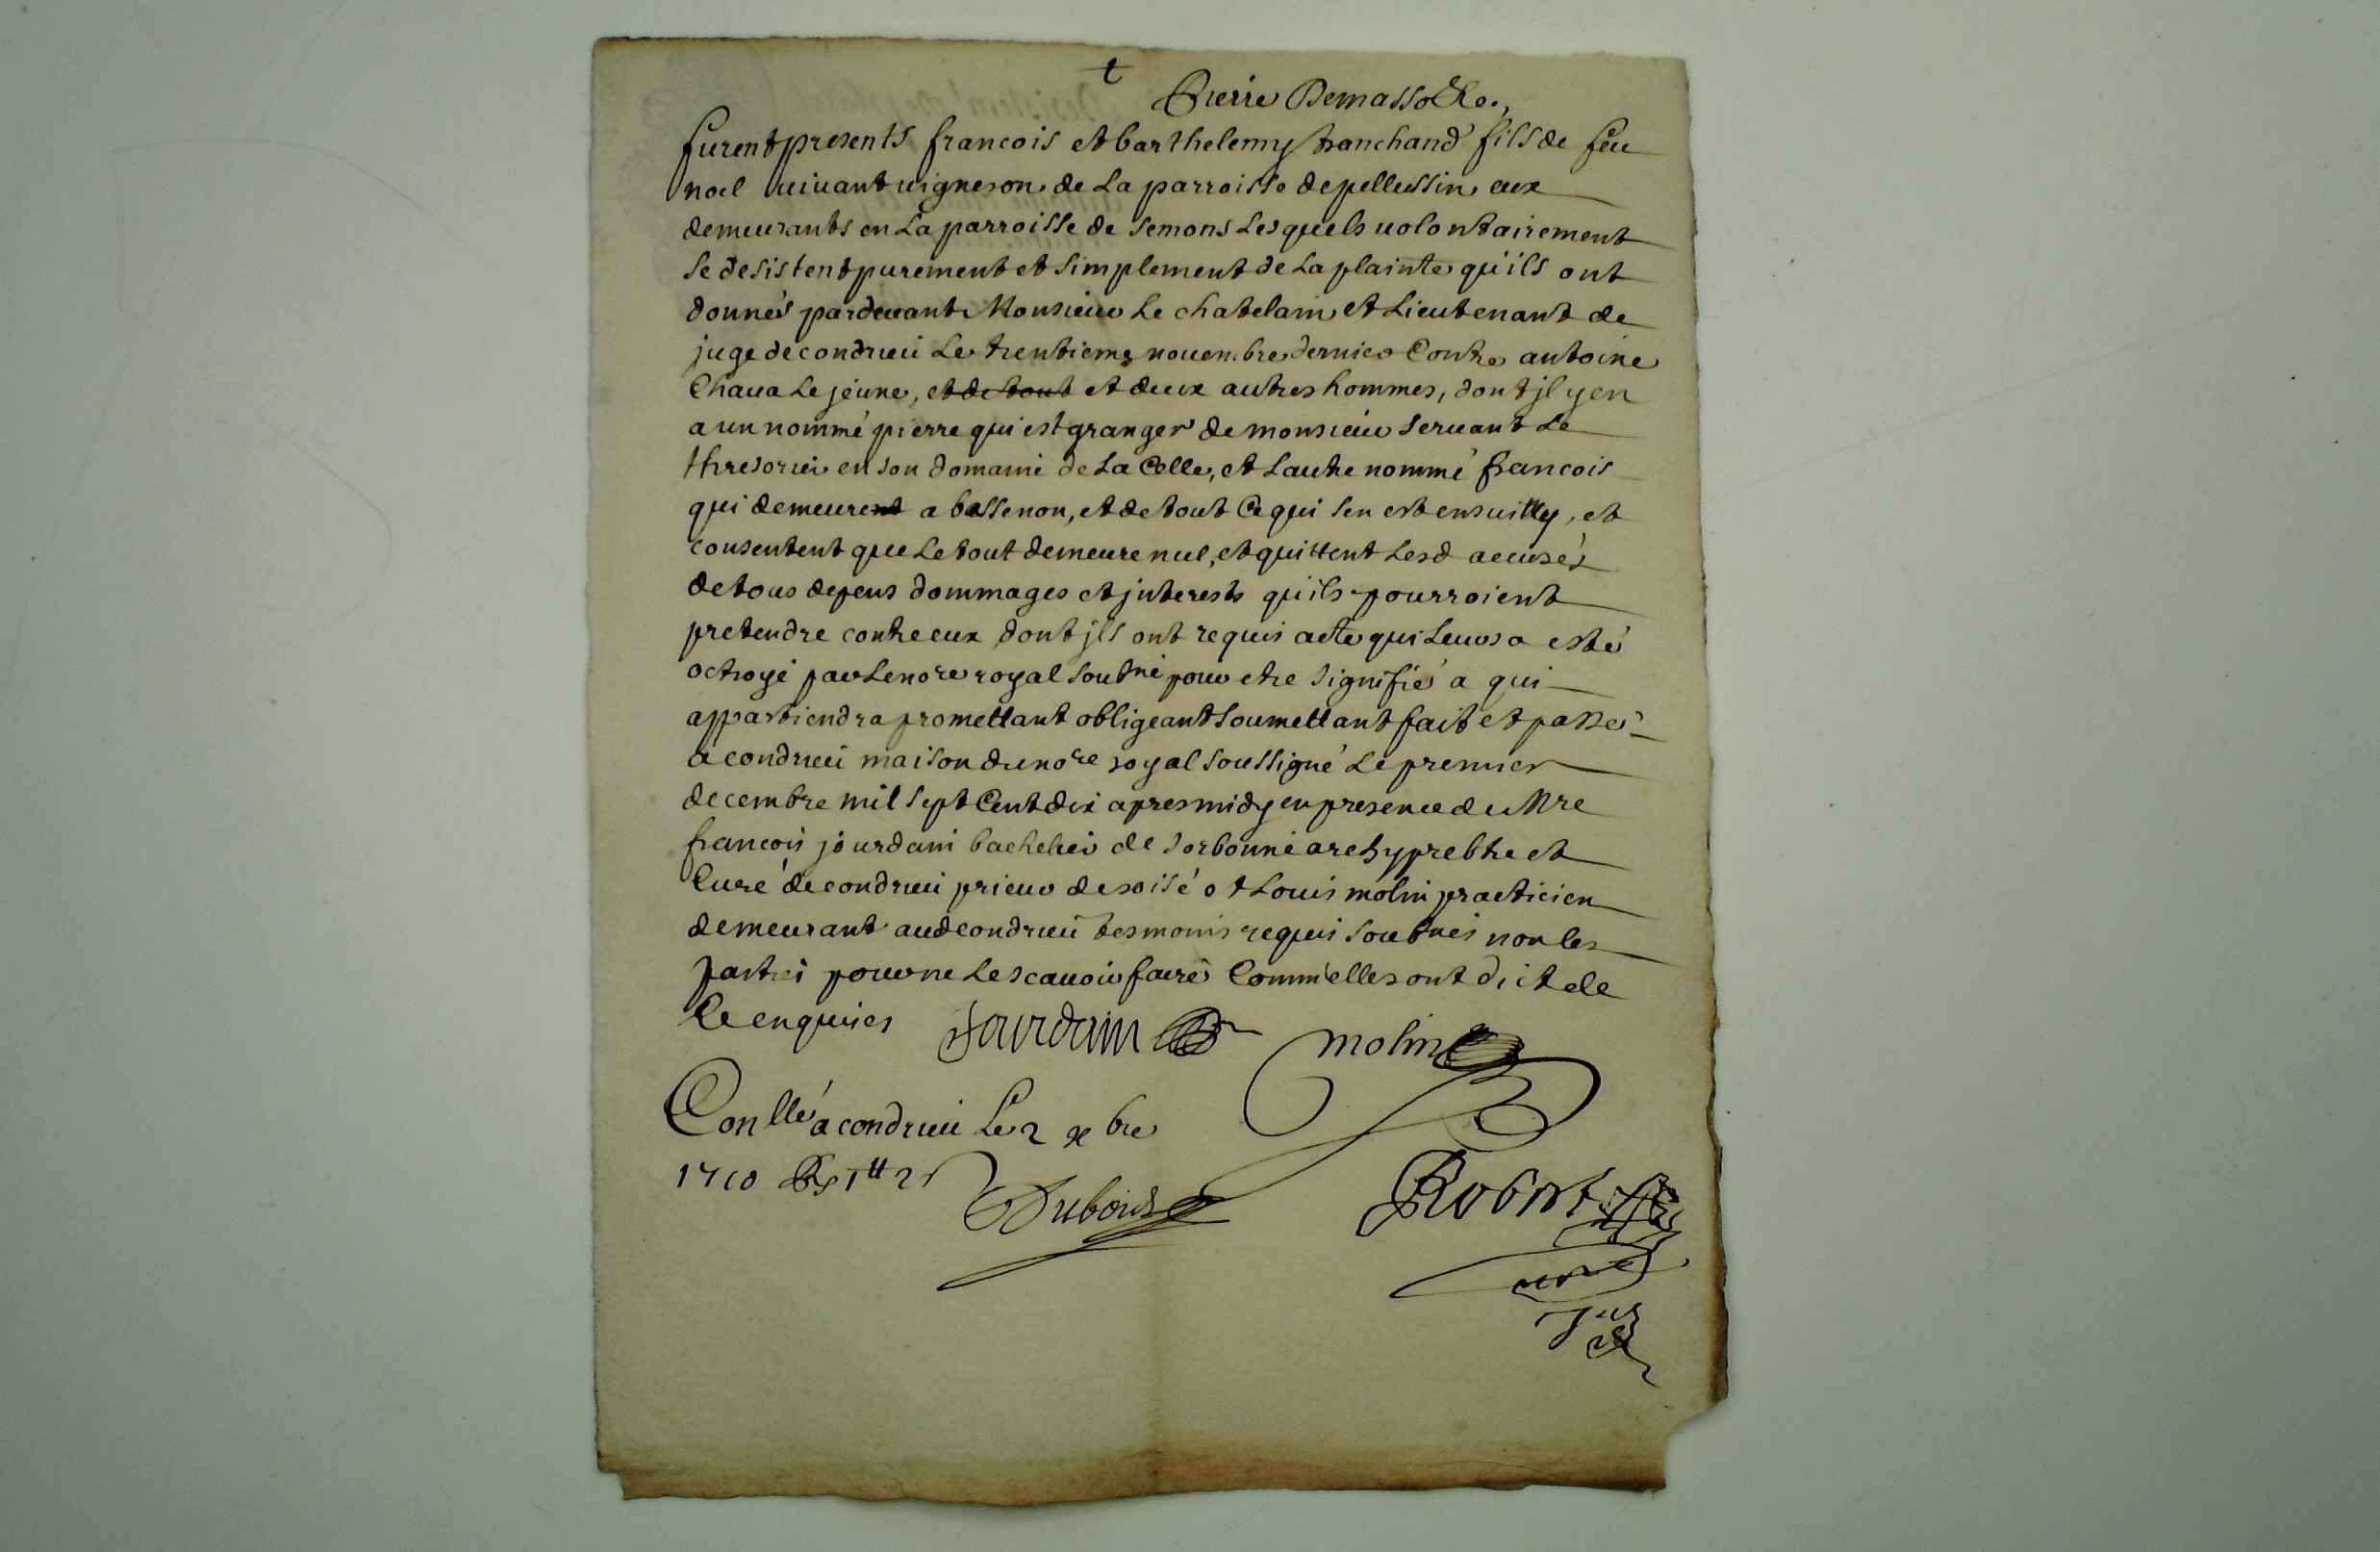 t
Pierre Demasso &c.,
furent presents francois et barthelemy tranchand fils de feu
noel uiuant uigneron de La parroisse de pellussin eux
demeurants en La parroisse de semons Lesquels uolontairement
se desistent purement et simplement de La plainte qu'ils ont
donnés pardeuant Monsieur Le chatelain et Lieutenant de
juge de condrieu Le trentieme nouembre dernier Contre antoine
Chaua Le jeune, et de tout et deux autres hommes, dont jl y en
a un nommé pierre qui est granger de monsieur seruant Le
thresorier en son domaine de La Celle, et Lautre nommé francois
qui demeurent a bassenon, et de tout Ce qui sen est ensuitty, et
consentent que Le tout demeure nul, et quittent Lesd accusés
de tous depens dommages et jnterests quils pourroient
pretendre contre eux dont jls ont requis acte qui Leurs a esté
octroyé par Le nore royal soubné pour etre signifié a qui
appartiendra promettant obligeant soumettant fait et passé
a condrieu maison du nore royal soussigné Le premier
decembre mil sept Cent dix apres midy en presence de Mre
francois jourdain bachelier de sorbonne archyprebtre et
Curé de condrieu prieur de et Louis molin practicien
demeurant aud condrieu tesmoins requis soubnés non les
parties pour ne Le scauoir faire Comm'elles ont dict de
Ce enquises Jourdain molin
Conllé a condrieu Le 2 xbre
1710 Rs 1tt 2s
Dubois Robert
nore